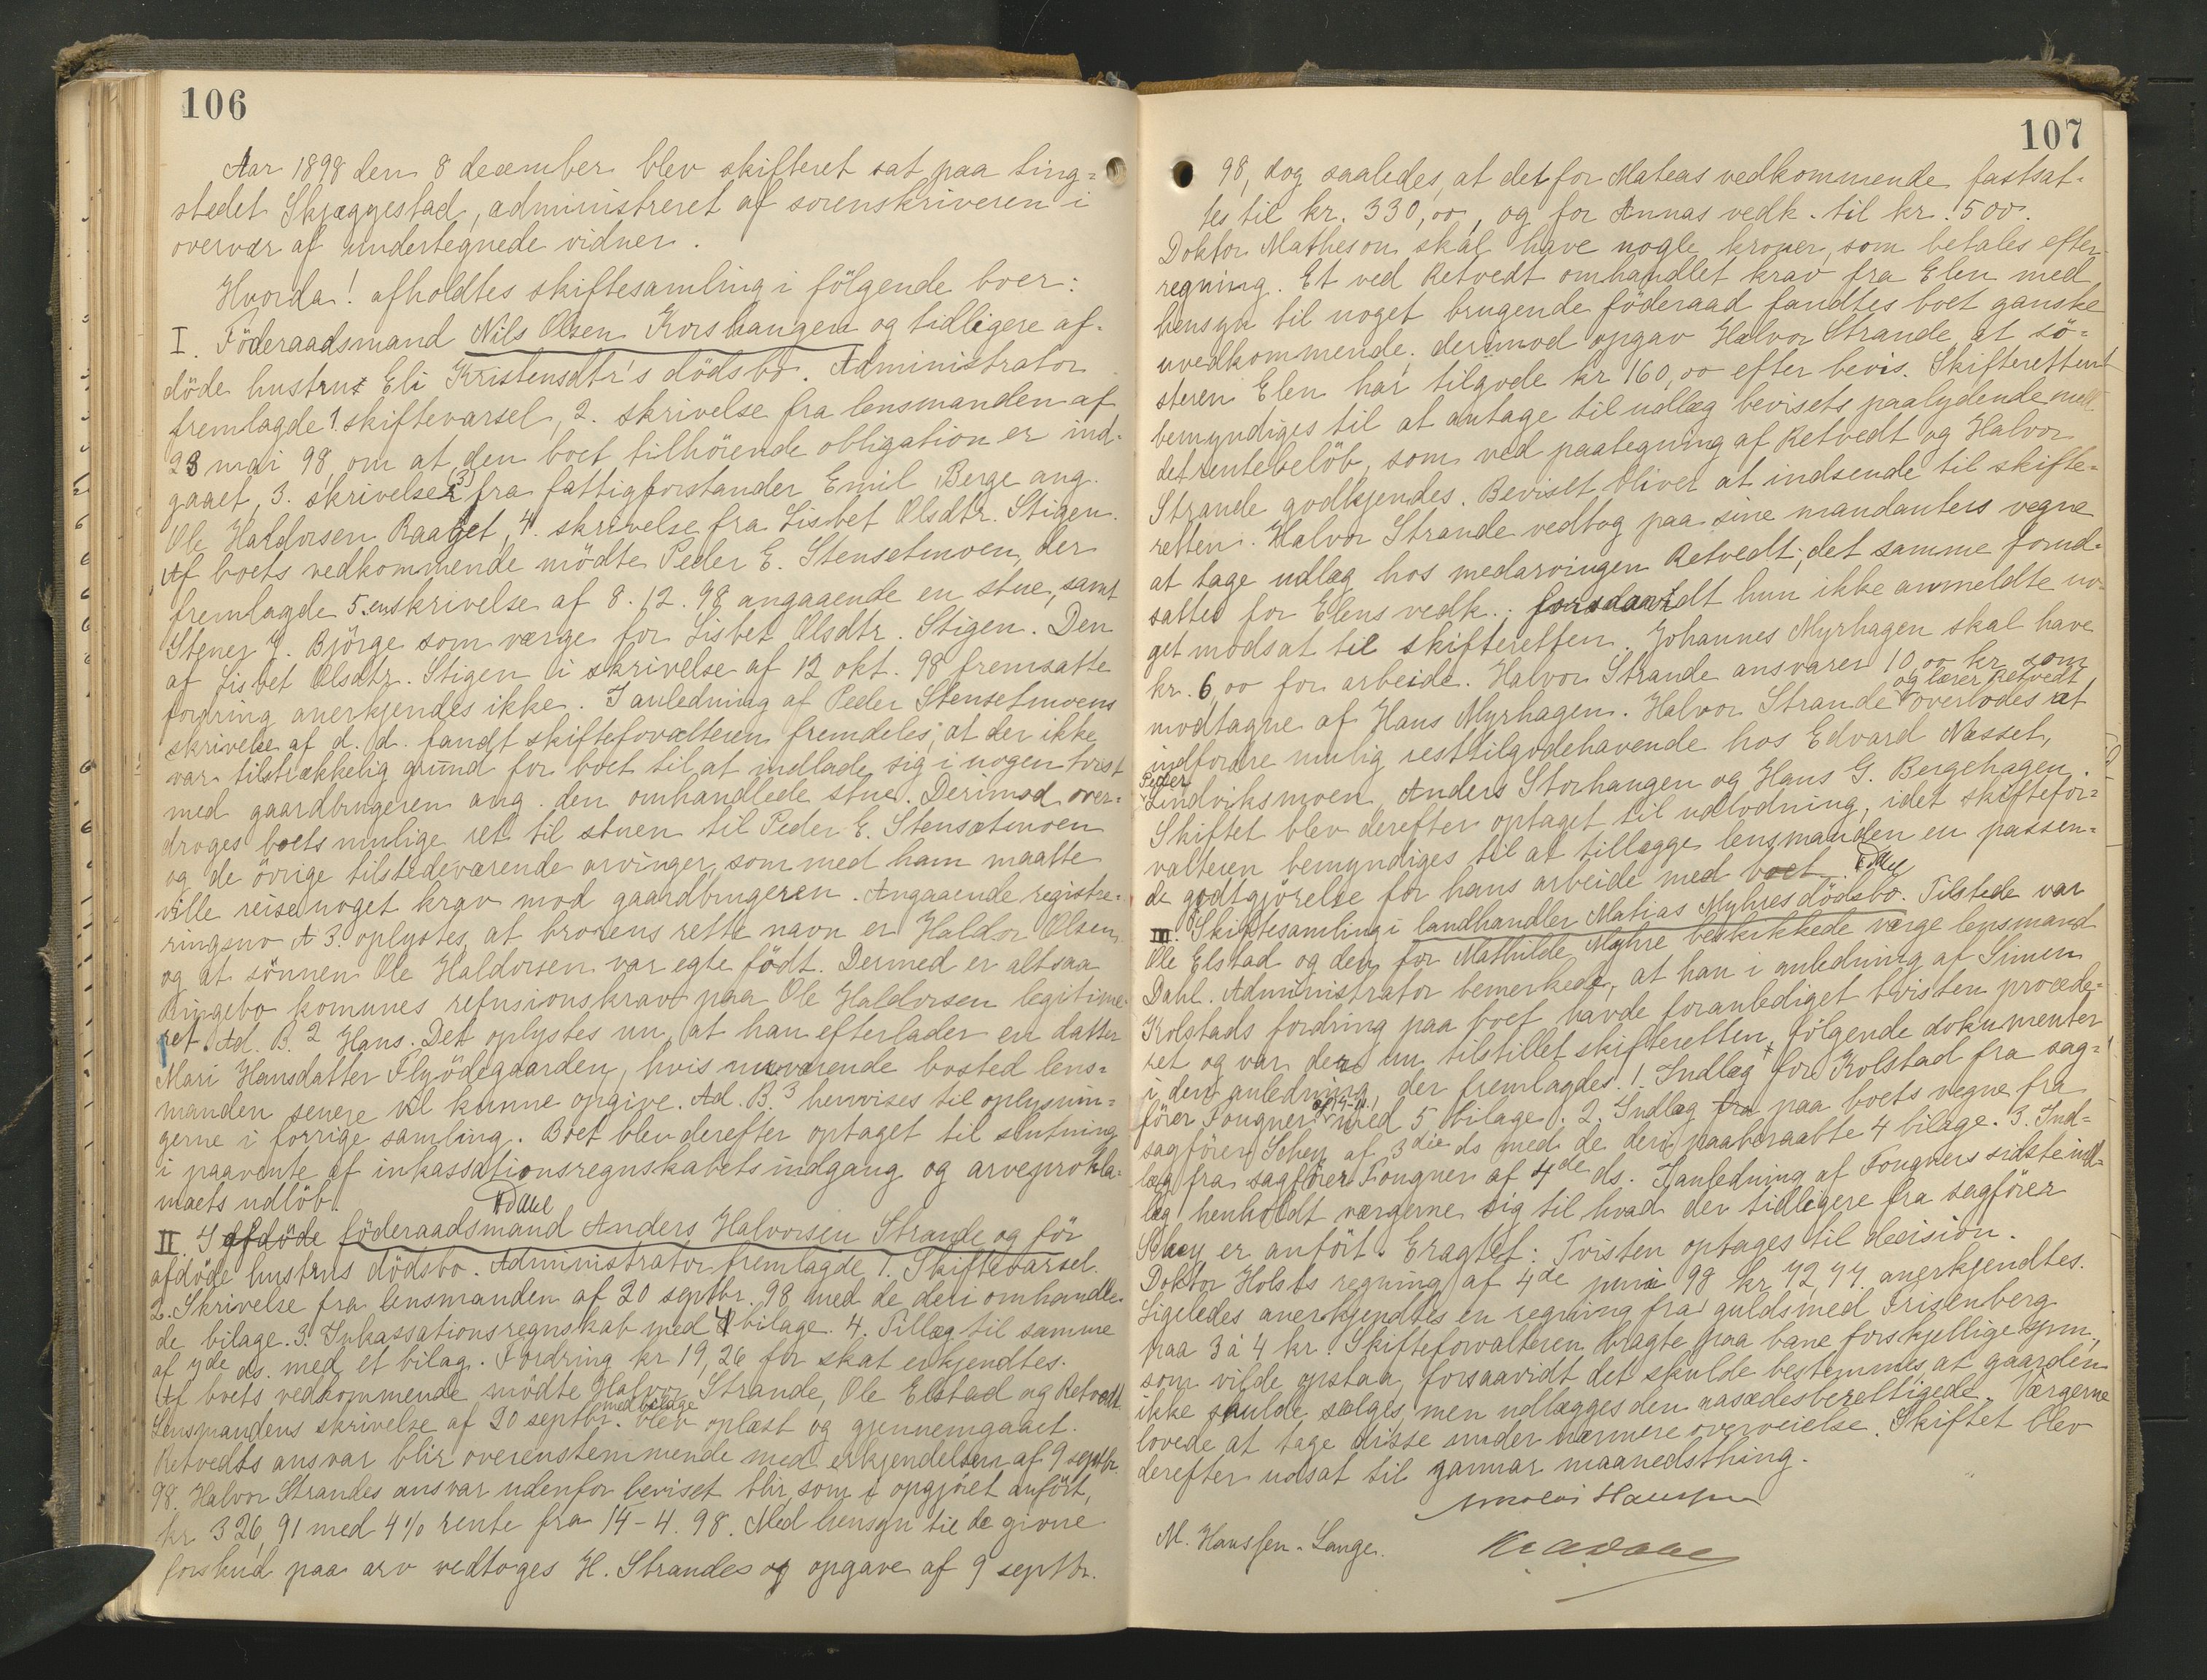 106
Aar 1898 den 8 december blev skifteret sat paa ting-
stedet Skjæggestad, administreret af sorenskriveren i
overvær af undertegnede vidner.
Hvorda! afholdtes skiftesamling i følgende boer:
I. Föderaadsmand Nils Olsen Korshaugen og tidligere af-
döde hustrus Eli Kristensdtr's dödsbo. Administrator
fremlagde 1. skiftevarsel, 2. skrivelse fra lensmanden af
23 mai 98 om at den boet tilhörende obligation er ind-
gaaet, 3. skrivelser (3) fra fattigforstander Emil Berge ang.
Ole Haldorsen Raaget, 4. skrivelse fra Lisbet Olsdtr. Stigen.
Af boets vedkommende mödte Peder E. Stensetmoen, der
fremlagde 5. en skrivelse af 8.12.98 angaaende en stue, samt
Stener J. Björge som værge for Lisbet Olsdtr. Stigen. Den
af Lisbet Olsdtr. Stigen i skrivelse af 12 okt. 98 fremsatte
fordring anerkjendes ikke. I anledning af Peder Stensetmoens
skrivelse af d. d. fandt skifteforvalteren fremdeles, at der ikke
var tilstrækkelig grund for boet til at indlade sig i nogen tvist
med gaardbrugeren ang. den omhandlede stue. Derimod over-
droges boets mulige ret til stuen til Peder E. Stensætmoen
og de övrige tilstedeværende arvinger, som med ham maatte
ville reise noget krav mod gaardbrugeren. Angaaende registre-
ringsno A 3. oplystes, at brorens rette navn er Haldor Olsen
og at sönnen Ole Haldorsen var egte födt. Dermed er altsaa
Ringebo komunes refusionskrav paa Ole Haldorsen legitime-
ret. Ad. B. 2 Hans. Det oplystes nu, at han efterlader en datter
Mari Hansdatter Flyödegaarden, hvis nuværende bosted lens-
manden senere vil kunne opgive. Ad. B. 3 henvises til oplysnin-
gerne i forrige samling. Boet blev derefter optaget til slutning
i paavente af inkassationsregnskabets indgang og arveprokla-
maets udlöb.
II. I afdöde föderaadsmand Anders Halvorsen Strande og för
afdöde hustrus dödsbo. Administrator fremlagde 1. Skiftevarsel.
2. Skrivelse fra lensmanden af 20 septbr. 98 med de deri omhandle-
de bilage. 3. Inkassationsregnskab med 4 bilage. 4. Tillæg til samme
af 7de ds. med et bilag. Fordring kr 19,26 for skat erkjendtes.
Af boets vedkommende mödte Halvor Strande, Ole Elstad og Retvedt.
Lensmandens skrivelse af 20 septbr. med bilage blev oplæst og gjennemgaaet.
Retvedts ansvar blir overenstemmende med erkjendelsen af 9 septbr.
98. Halvor Strandes ansvar udenfor beviset blir, som i opgjöret anfört,
kr 326,91 med 4% rente fra 14-4.98. Med hensyn til de givne
forskud paa arv vedtoges H. Strandes og opgave af 9 septbr.
107
98, dog saaledes, at det for Mateas vedkommende fastsat-
tes til kr. 330,00, og for Annas vedk. til kr. 500.
Doktor Matheson skal have nogle kroner, som betales efter
regning. Et ved Retvedt omhandlet krav fra Elen med
hensyn til noget brugende föderaad fandtes boet ganske
uvedkommende; derimod opgav Halvor Strande, at sö-
steren Elen har tilgode kr 160,00 efter bevis. Skifteretten
bemyndiges til at antage til udlæg bevisets paalydende med
det rentebelöb, som ved paategning af Retvedt og Halvor
Strande godkjendes. Beviset bliver at indsende til skifte-
retten. Halvor Strande vedtog paa sine mandanters vegne
at tage udlæg hos medarvingen Retvedt; det samme forud-
sattes for Elens vedk. forsaavidt hun ikke anmeldte no-
get modsat til skifteretten. Johannes Myrhagen skal have
kr. 6,00 for arbeide. Halvor Strande ansvarer 10,00 kr som
modtagne af Hans Myrhagen. Halvor Strande og lærer Retvedt overlodes at
indfordre mulig resttilgodehavende hos Edvard Næsset,
Peder Lindviksmoen, Anders Storhaugen og Hans G. Bergehagen.
Skiftet blev derefter optaget til udlodning, idet skiftefor-
valteren bemyndiges til at tillægge lensmanden en passen-
de godtgjörelse for hans arbeide med boet.
III. Skiftesamling i landhandler Matias Myhres dödsbo. Tilstede var
Ole Elstad og den for Mathilde Myhre beskikkede værge lensmand
Dahl. Administrator bemerkede, at han i anledning af Simen
Kolstads fordring paa boet havde foranlediget tvisten procede-
ret og var der nu tilstillet skifteretten følgende dokumenter
i den anledning, der fremlagdes. 1. Indlæg for Kolstad fra sag-
förer Fougner med 5 bilage. 2. Indlæg fra paa boets vegne fra
sagförer Schey af 3die ds med de deri paaberaabte 4 bilage. 3. Ind-
læg fra sagförer Fougner af 4de ds. I anledning af Fougners sidste ind-
læg henholdt værgerne sig til hvad der tidligere fra sagförer
Schey er anfört. Eragtet: Tvisten optages til decision.
Doktor Holsts regning af 4de juni 98 kr 72,77 anerkjendtes.
Ligeledes anerkjendtes en regning fra guldsmed Frisenberg
paa 3 à 4 kr. Skifteforvalteren bragte paa bane forskjellige spm.,
som vilde opstaa, forsaavidt det skulde bestemmes, at gaarden
ikke skulde sælges, men udlægges den aasædesberettigede. Værgerne
lovede at tage disse under nærmere overveielse. Skiftet blev
derefter udsat til januar maanedsthing.
M. Hanssen-Lange.